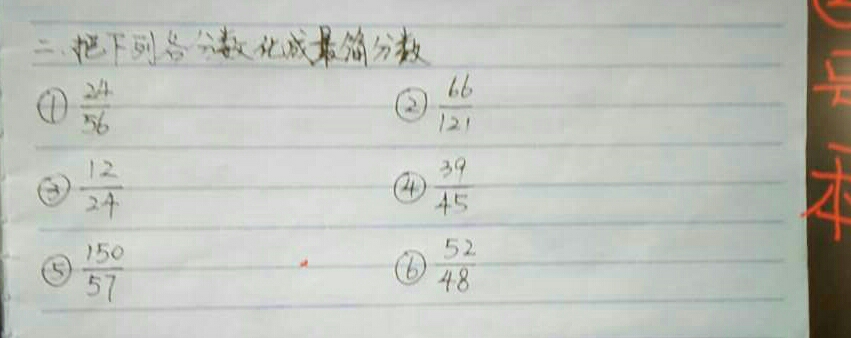 二.把下列各分数化成最简分数
① 24/56 ② 66/121
③ 12/24 ④ 39/45
⑤ 150/57 ⑥ 52/48
本